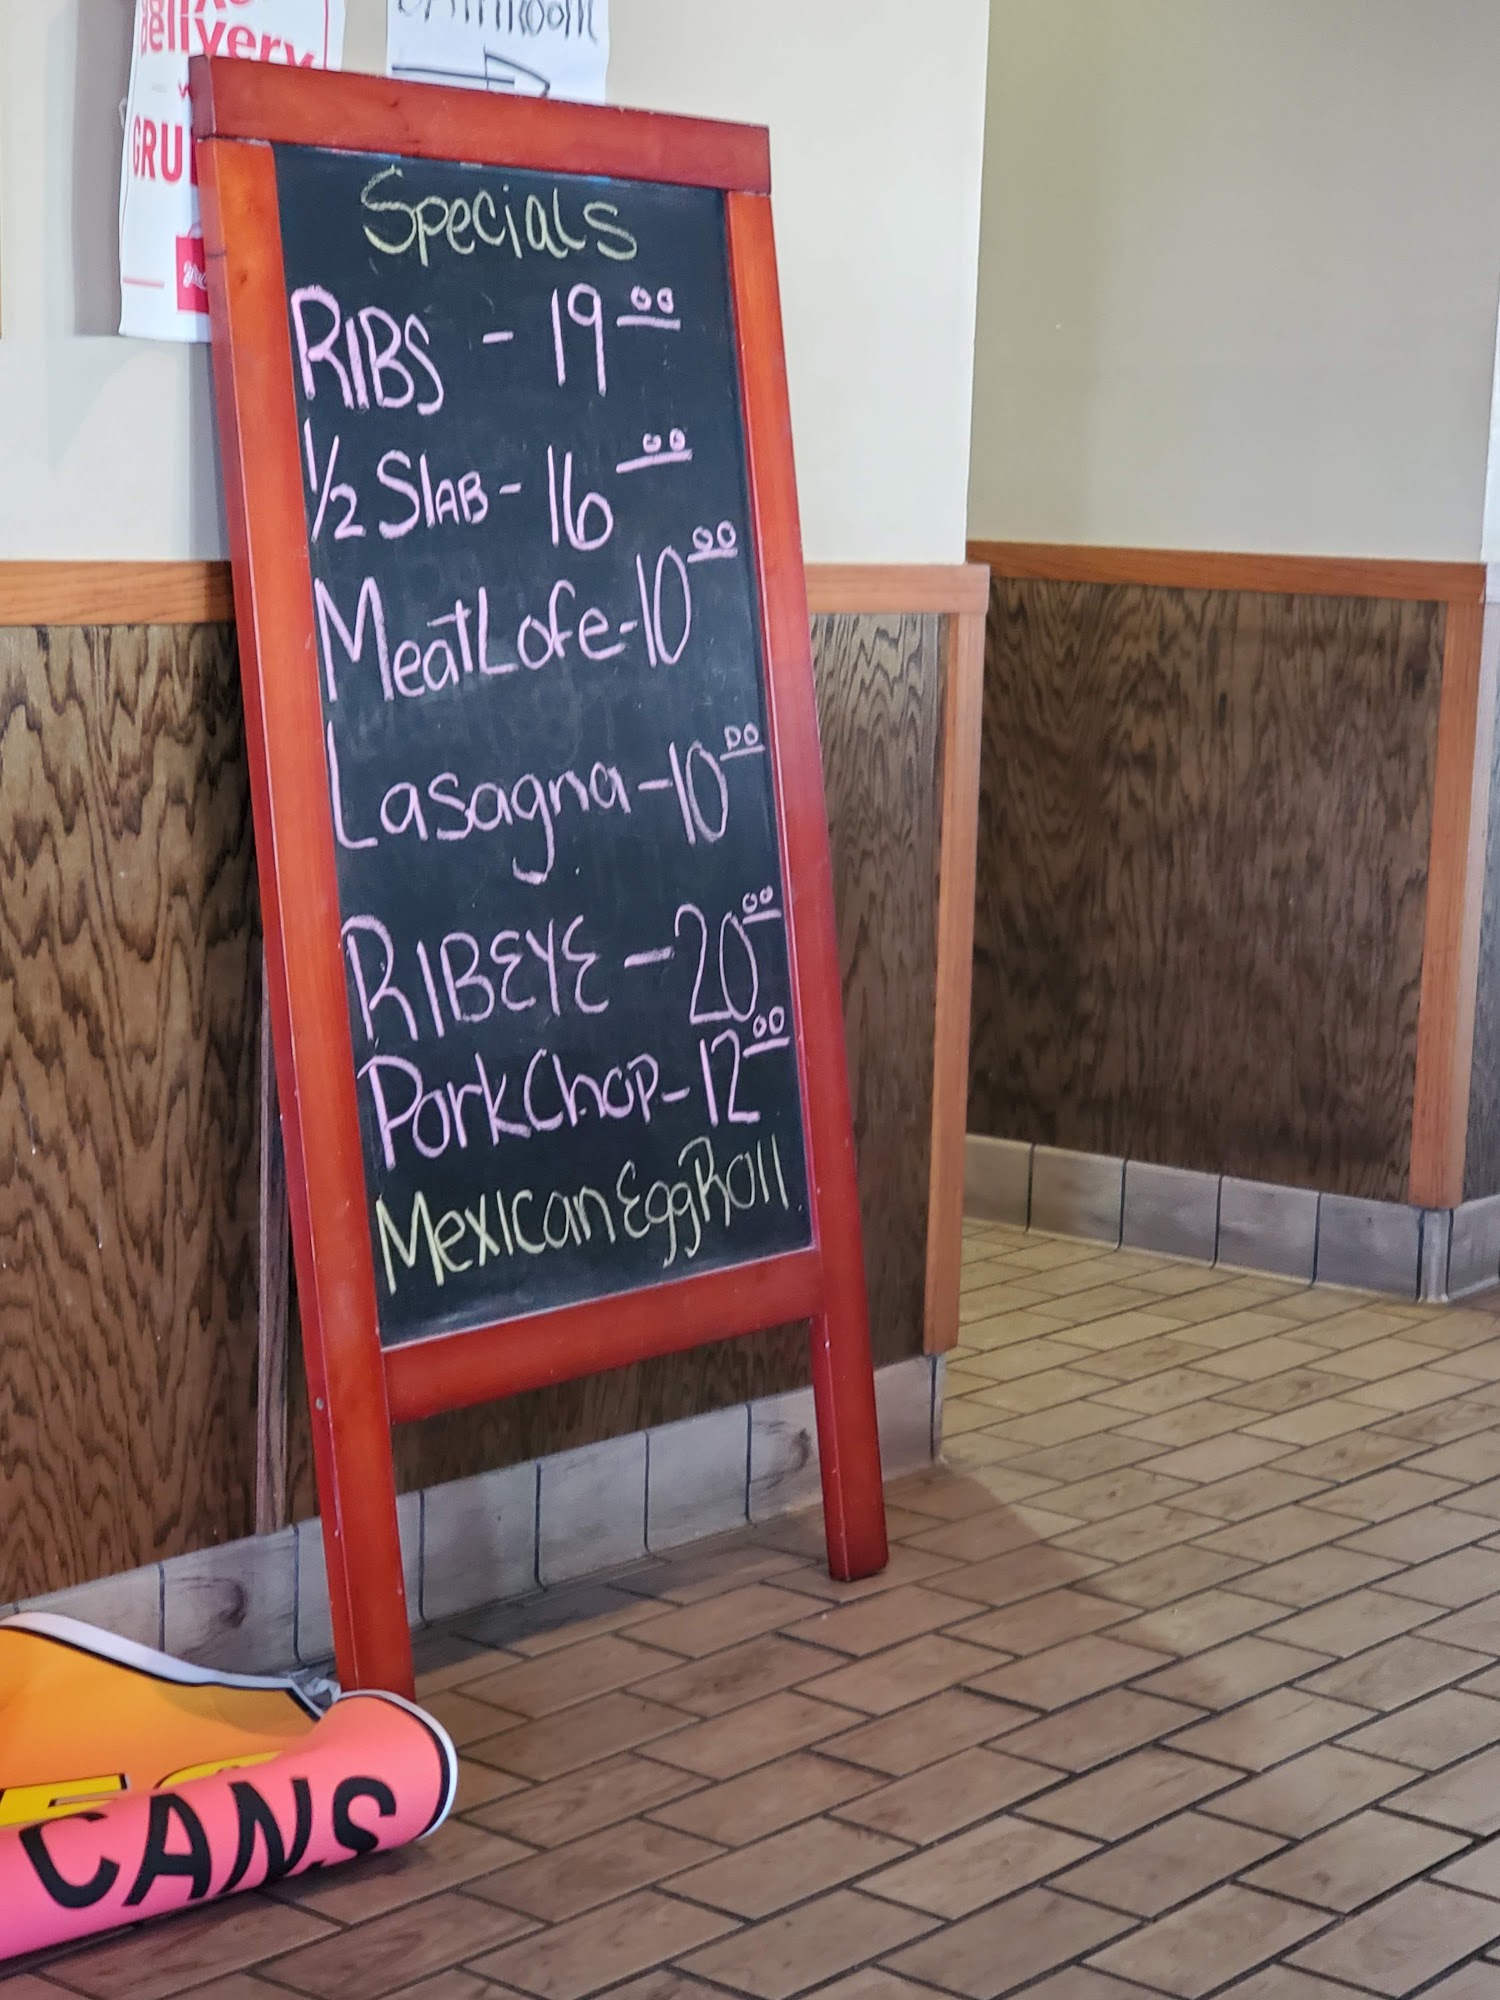 delivery
GRU
BATHROOM
Specials
RIBS - 19 00
1/2 SlAB - 16 00
MeatLofe - 10 00
Lasagna - 10 00
RIBEYE - 20 00
PorkChop - 12 00
MexicanEggRoll
CANS